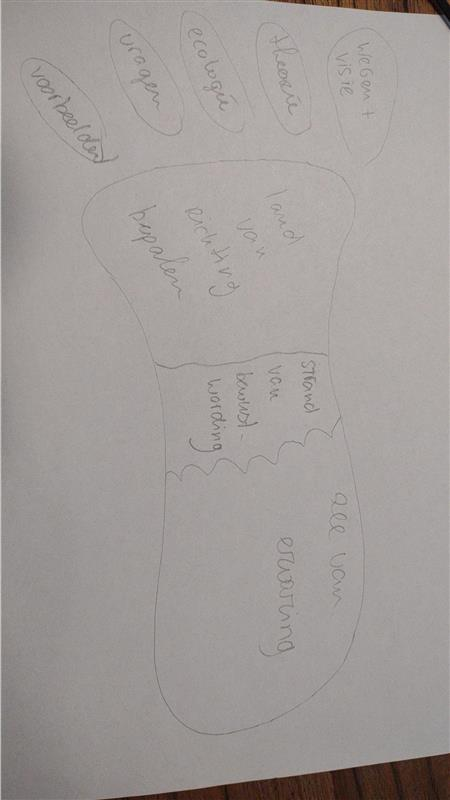 wegen +
visie
theorie
ecologie
vragen
voorbeelden
land
van
richting
bepalen
strand
van
bewust-
wording
zee van
ervaring